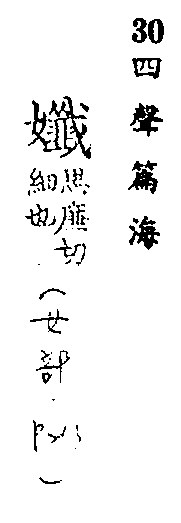 30四聲篇海
孅思廉切
細也
(女部